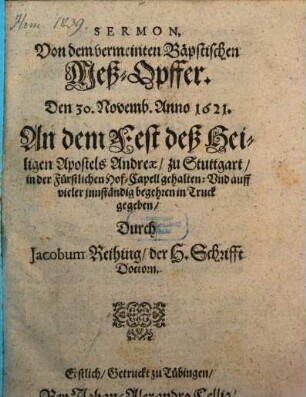 Hom. 1839.
SERMON,
Von dem vermeinten Bäpstischen
Meß-Opffer.
Den 30. Novemb. Anno 1621.
An dem Fest deß Hei-
ligen Apostels Andreæ / zu Stuttgart /
in der Fürstlichen Hof-Capell gehalten: Vnd auff
vieler jnnständig begehren in Truck
gegeben /
Durch
Jacobum Rething / der H. Schrifft
Doctorn.
Erstlich / Getruckt zu Tübingen /
Alexandro Cellio /